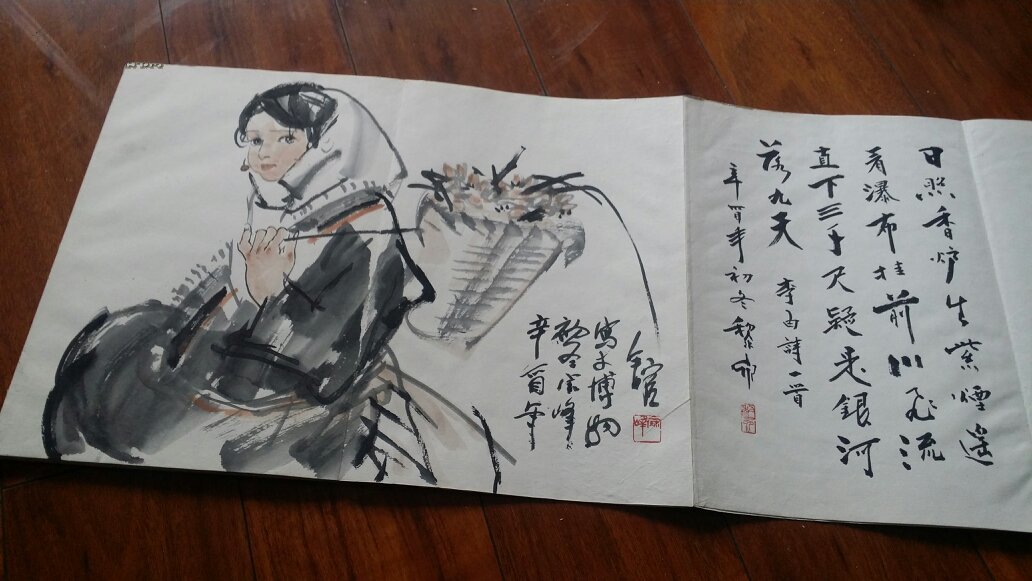 日照香炉生紫煙遥
看瀑布挂前川飞流
直下三千尺疑是銀河
落九天 李白詩一首
辛酉年初冬黎
辛酉年
初冬宗峰
寫于博物
舘